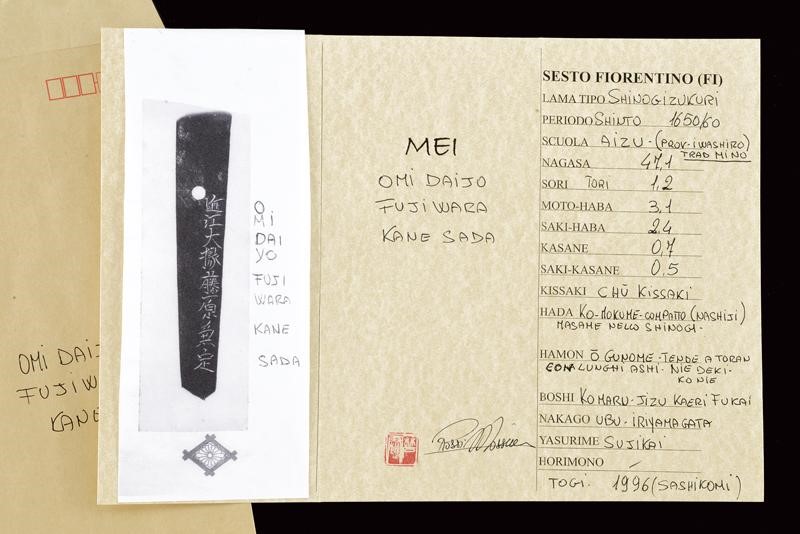 OMI DAI
FUJIW
KANE
近江大掾藤原兼定
O
MI
DAI
YO
FUJI
WARA
KANE
SADA
MEI
OMI DAIJO
FUJIWARA
KANE SADA
SESTO FIORENTINO (FI)
LAMA TIPO SHINOGIZUKURI
PERIODO SHINTO 1650/60
SCUOLA AIZU-(PROV-IWASHIRO)
TRAD MINO
NAGASA 47,1
SORI TORI 1,2
MOTO-HABA 3,1
SAKI-HABA 2,4
KASANE 0,7
SAKI-KASANE 0,5
KISSAKI CHŪ KISSAKI
HADA KO-MOKUME-COMPATTO (NASHIJI)
MASAME NELLO SHINOGI-
HAMON Ō GUNOME-TENDE A TORAN
CON LUNGHI ASHI. NIE DEKI-
KO NIE
BOSHI KOMARU-JIZU KAERI FUKAI
NAKAGO UBU-IRIYAMAGATA
YASURIME SUJIKAI
HORIMONO -
TOGI. 1996 (SASHIKOMI)